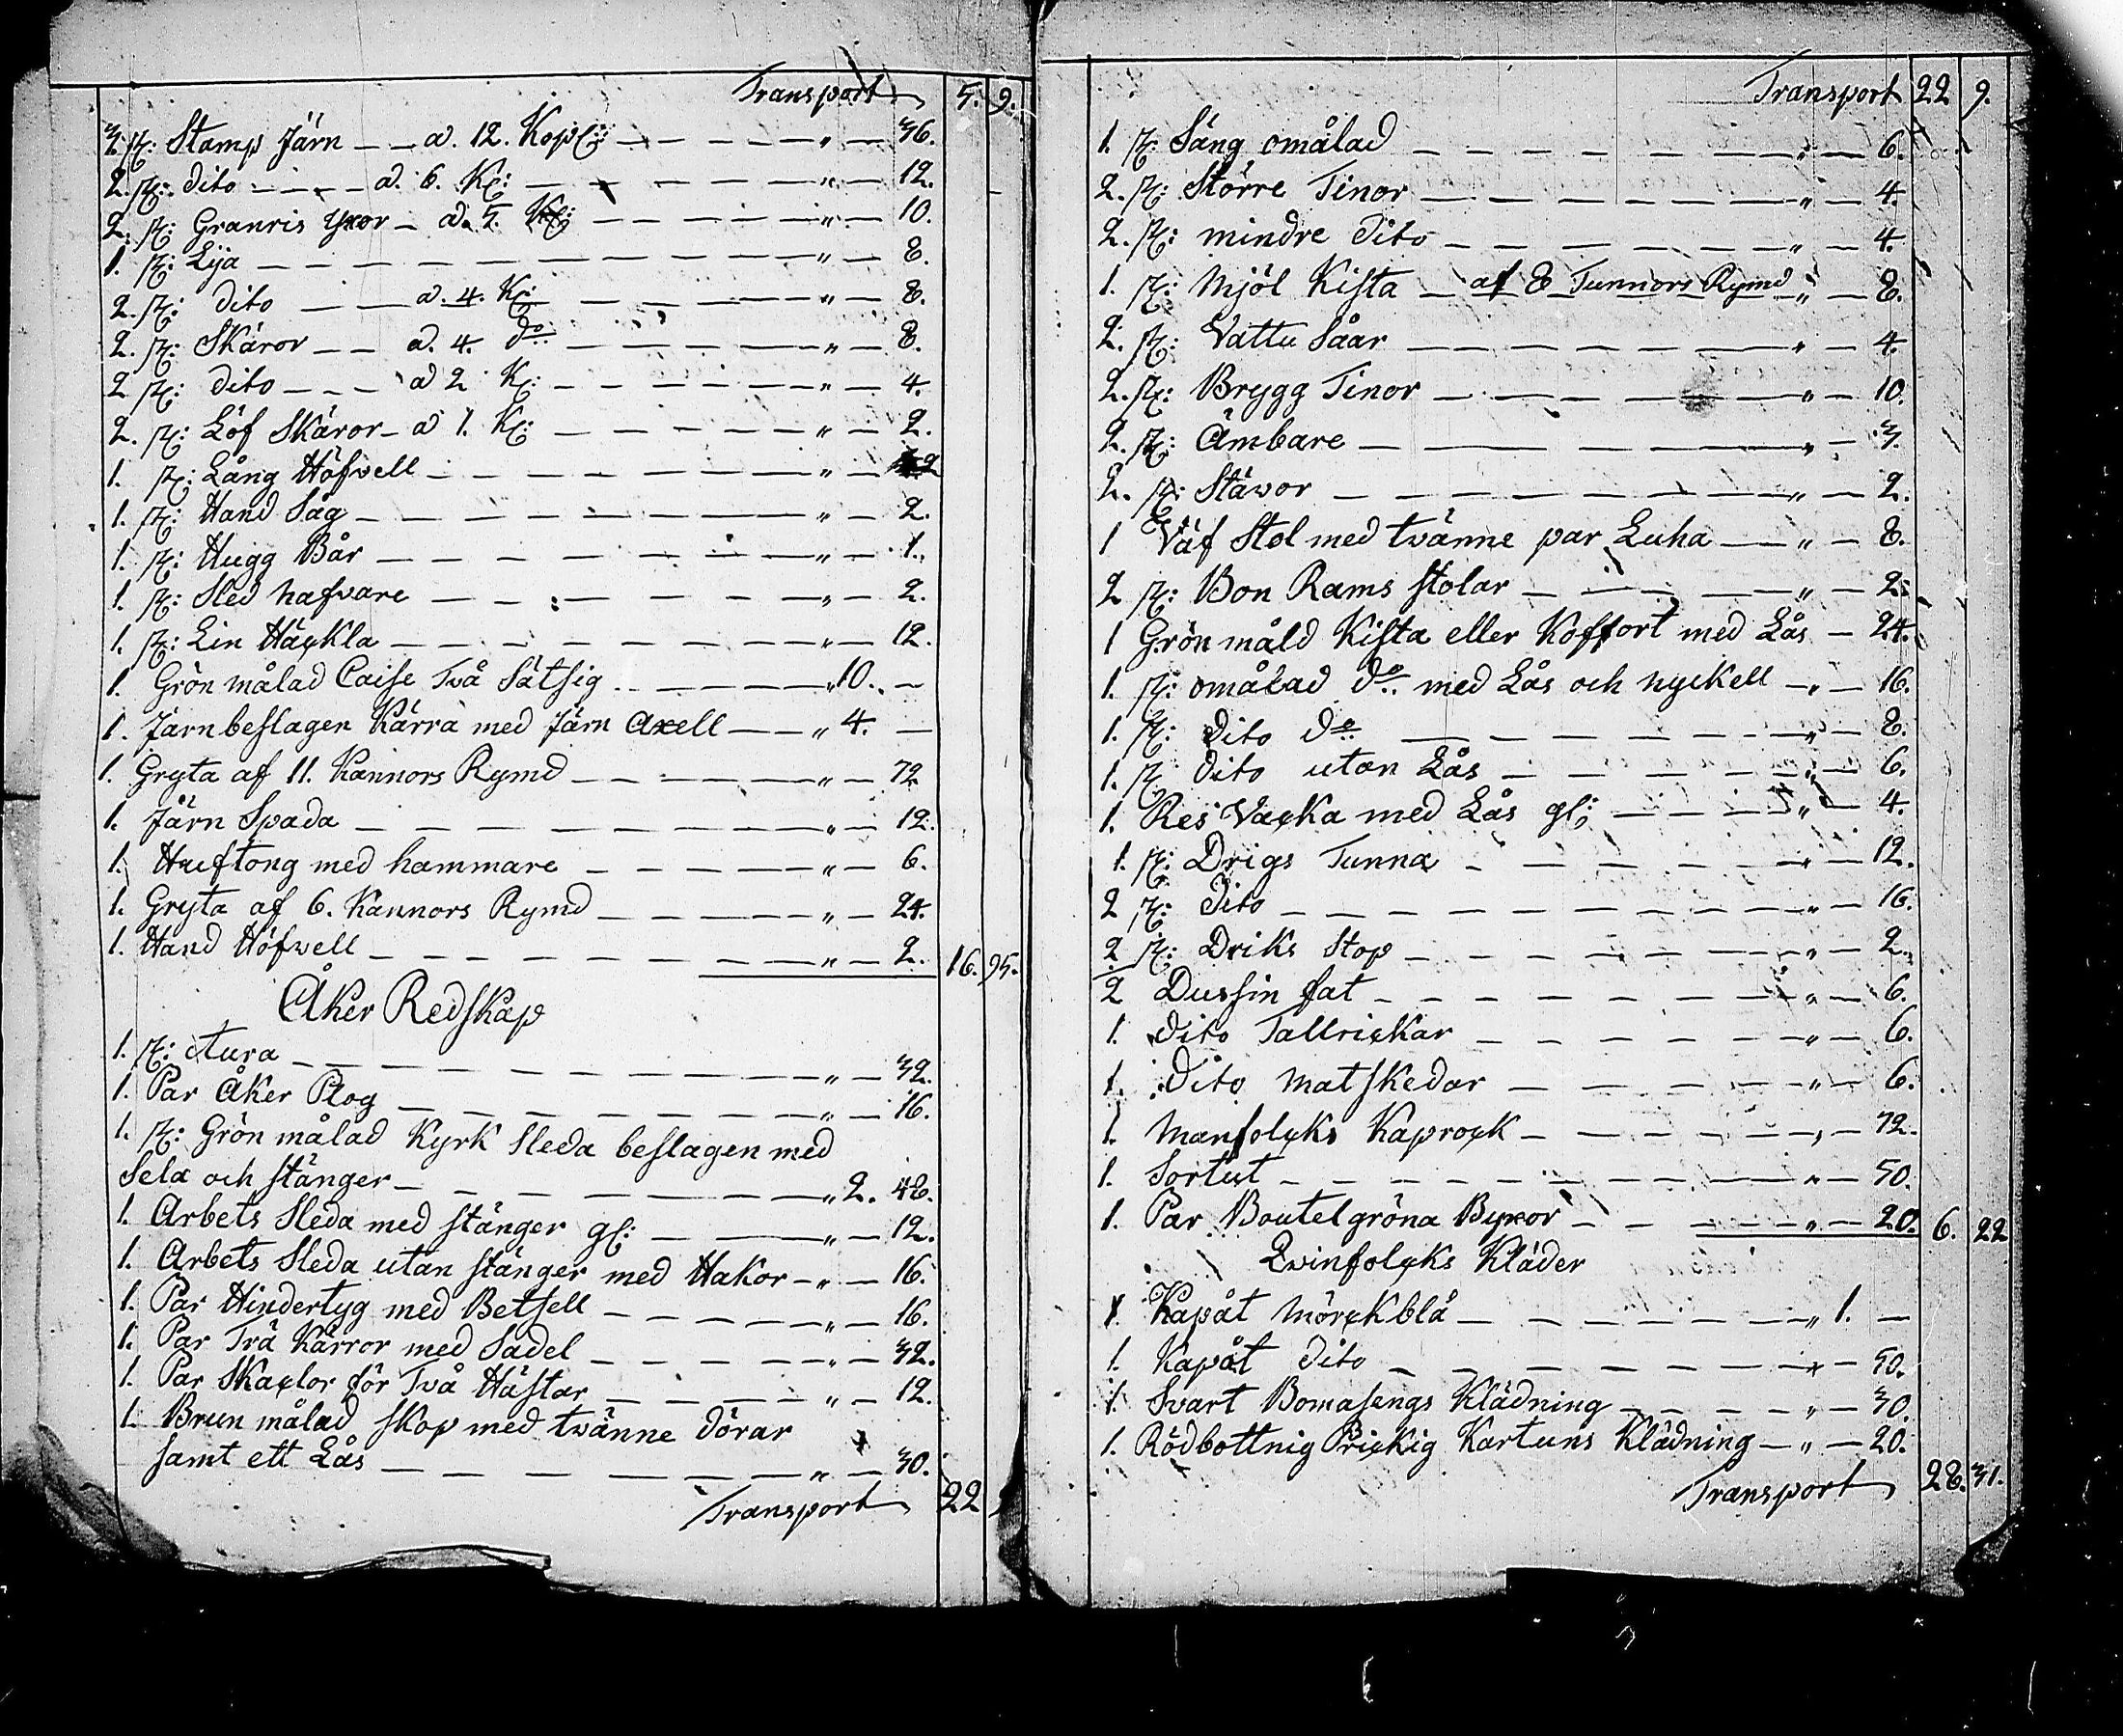 Transport 5. 9.
3 st: Stamp Järn — — a. 12. Kop: — — — „ — 36.
2. st: dito — — — a. 6. K: — — — „ — 12.
2. st: Granris yxor — a. 5. K: — — — „ — 10.
1. st: Lija — — — — — „ — 8.
2. st: dito — — a. 4. K: — — — „ — 8.
2. st: Skäror — — a. 4. do — — — „ — 8.
2 st: dito — — — a 2 K: — — — „ — 4.
2. st: Löf Skäror — a 1. K: — — — „ — 2.
1. st: Lång Höfwell — — — — „ — 2
1. st: Hand Såg — — — — „ — 2.
1. st: Hugg Bår — — — — „ — 1.
1. st: Sled nafware — — — — „ — 2.
1. st: Lin Häckla — — — — „ — 12.
1. Grön målad Caise Två Sätsig — — — „ 10. —
1. Järnbeslagen Kärra med Järn Axell — — „ 4. —
1. Gryta af 11. Kannors Rymd — — — „ — 72
1. Järn Spada — — — — „ — 12.
1. Huftong med hammare — — — „ — 6.
1. Gryta af 6. Kannors Rymd — — — „ — 24.
1. Hand Höfwell — — — — „ — 2. 16. 95.
Åker Redskap
1. st: Aura — — — — „ — 32.
1. Par Åker Plog — — — — „ — 16.
1. st: Grön målad Kyrk Sleda beslagen med
Sela och stänger — — — — „ 2. 48.
1. Arbets Sleda med stänger gl: — — „ — 12.
1. Arbets Sleda utan stänger med Hakor — „ — 16.
1. Par Hindertyg med Betsell — — — „ — 16.
1. Par Trä Kärror med Sadel — — — „ — 32.
1. Par Skaclor för Två Hästar — — — „ — 12.
1. Brun målad skop med twänne dörar
samt ett Lås — — — — „ — 30.
Transport 22
Transport 22 9.
1. st: Säng omålad — — — — „ — 6.
2. st: Större Tinor — — — — „ — 4.
2. st: mindre dito — — — — „ — 4.
1. st: Mjöl Kista — af 8 Tunnors Rymd „ — 8.
2. st: Vattu Såar — — — — „ — 4.
2. st: Brygg Tinor — — — — „ — 10.
2. st: Ämbare — — — — „ — 3.
2. st: Stäwor — — — — „ — 2.
1 Väf Stol med twänne par Luha — „ — 8.
2 st: Bon Rams stolar — — — „ — 2.
1 Grön måld Kista eller Koffort med Lås — 24.
1. st: omålad do med Lås och nyckell — „ — 16.
1. st: Dito do — — — — „ — 8.
1. st. dito utan Lås — — — — „ — 6.
1. Res Vacka med Lås gl: — — — „ — 4.
1. st: Drigs Tunna — — — — „ — 12.
2 st: Dito — — — — „ — 16.
2 st: Driks Stop — — — — „ — 2.
2 Dussin fat — — — — „ — 6.
1. Dito Tallrickar — — — — „ — 6.
1. Dito matskedar — — — — „ — 6.
1. Manfolcks Kaprock — — — — „ — 72.
1. Sortut — — — — „ — 50.
1. Par Boutelgröna Byxor — — — „ — 20. 6. 22
Qvinfolcks Kläder
1. Kapåt mörckblå — — — — „ 1. —
1. Kapåt dito — — — — „ — 50.
1 Svart Bomasengs Klädning — — — „ — 30.
1. Rödbottnig Prickig Kartuns Klädning — „ — 20.
Transport 28. 31.